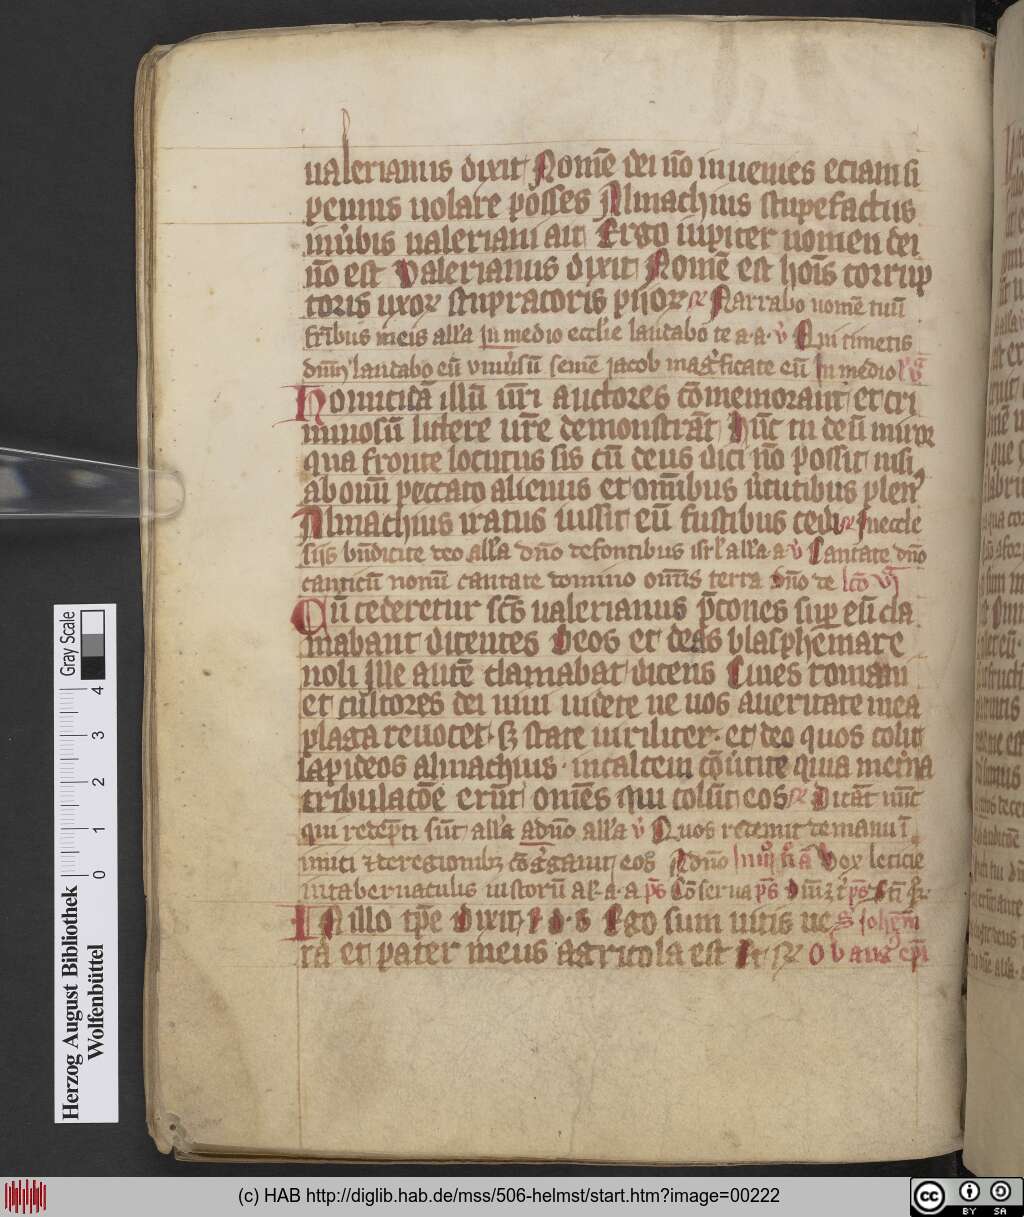 valerianus dixit Nomē dei nō inuenies eciam si
pennis uolare posses Almachius stupefactus
in ūbis ualeriani ait Ergo iupiter nomen dei
nō est Valerianus dixit Nomē est hoīs corrup
toris uxoꝝ stupratoris Narrabo nomē tuū
fribus meis alla in medio ecclīe laudabo te a·a· v̄ Qui timetis
dnm laudabo eū vniūsū semē jacob magficate eū In medio
Homicidā illū ūri auctores cōmemorant et cri
minosū littere ūre demonstrāt Hūc tu deū miror
qua fronte locutus sis cū deus dici nō possit nisi
ab omī peccato alienus et omībus ūtutibus plen9
Almachius iratus iussit eū fustibus cedi In eccle
siis bn̄dicite deo alla dn̄o de fontibus isrl alla·a v̄ Cantate dn̄o
canticū nouū cantate domino omīs terra dn̄o de
Cū cederetur scs ualerianus p̄cones sup eū cla
mabant dicentes Deos et deas blasphemare
noli Ille autē clamabat dicens Ciues romani
et cultores dei uiui uidete ne uos a ueritate mea
plaga reuocet· sȝ state uiriliter· et deo quos colit
lapideos almachius· in calcem quia
tribulacōe erūt omēs qui colūt eos Dicāt nūc
qui redēpti sūt alla a dn̄o alla v̄ Quos redemit de manu ī
imici ⁊ de regionibȝ cōggauit eos A dn̄o Vox leticie
in tabernaculis iustorū al·a·a ps̄ Cōserua ps̄
IN illo tpe Dixit· I·d·s· Ego sum uitis ue
ra et pater meus agricola est
Gray Scale
4 3 2 1 0
Herzog August Bibliothek
Wolfenbüttel
(c) HAB http://diglib.hab.de/mss/506-helmst/start.htm?image=00222
cc BY SA